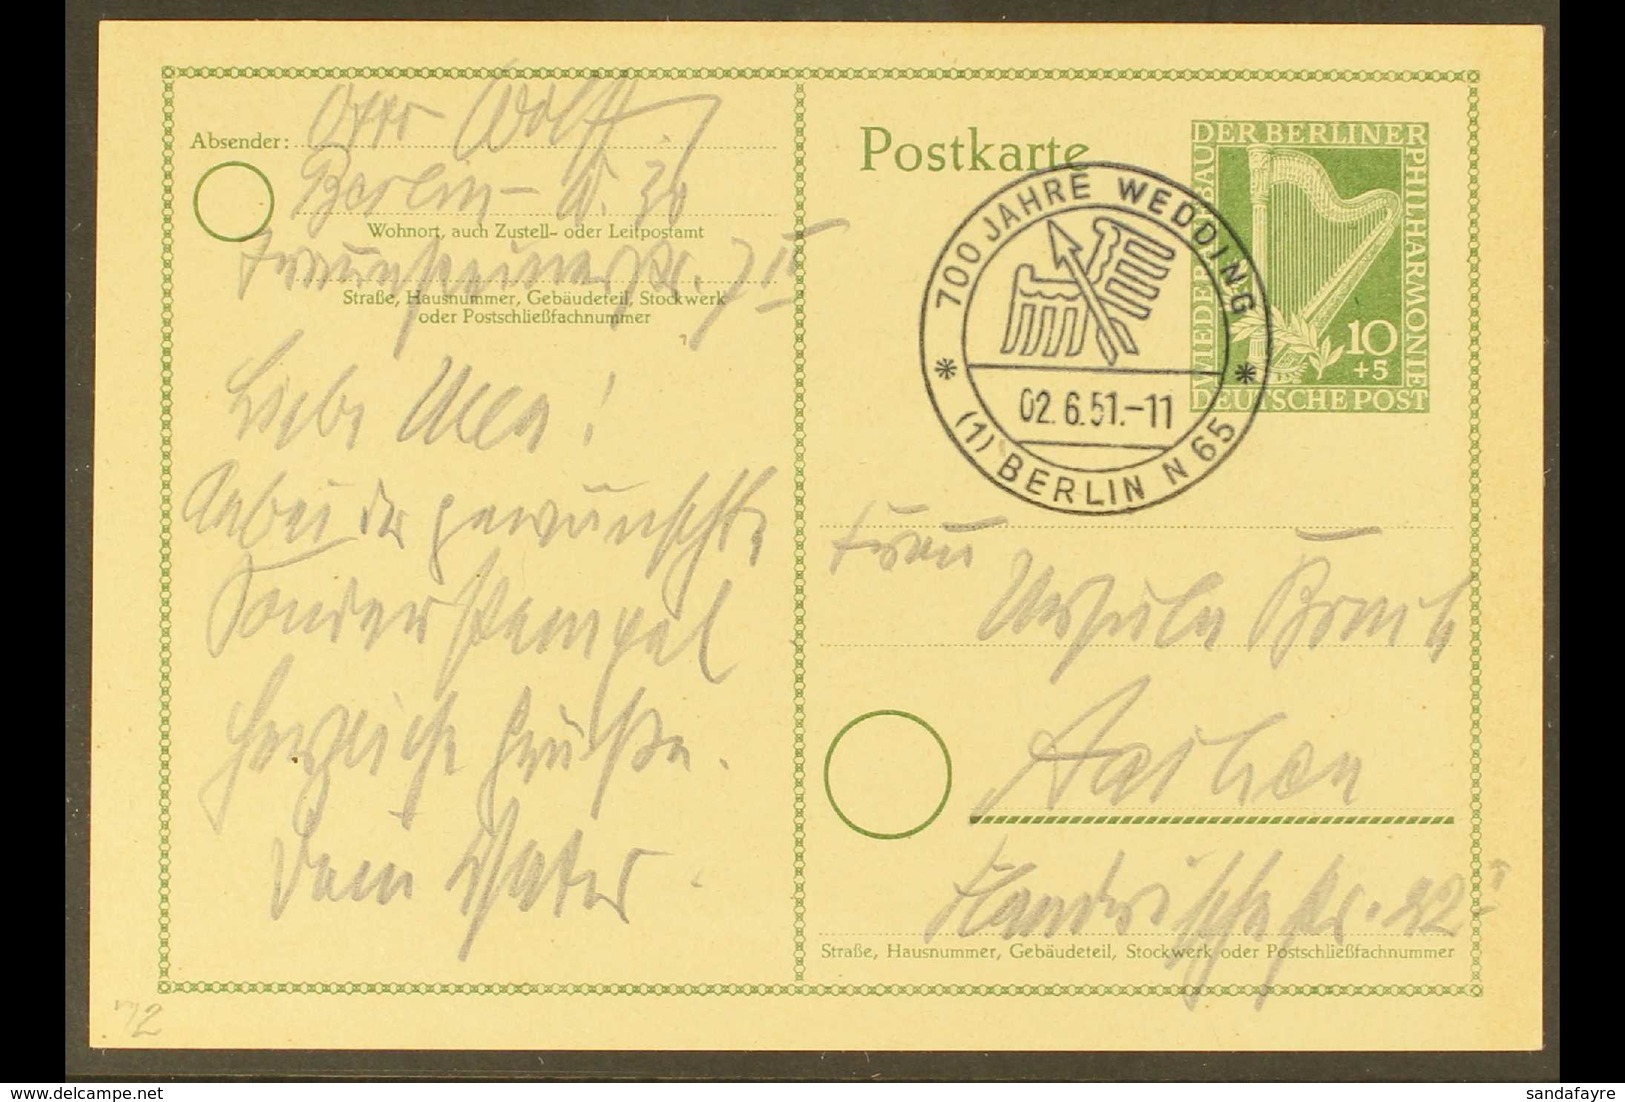 Absender: Otto Wolff
Berlin - W. 30
Wohnort, auch Zustell- oder Leitpostamt
Straße, Hausnummer, Gebäudeteil, Stockwerk
oder Postschließfachnummer
Liebe Ulla!
Anbei der gewünschte
Sonderstempel
Herzliche Grüße.
Dein Vater.
Postkarte
WIEDERAUFBAU DER BERLINER PHILHARMONIE
10
+5
DEUTSCHE POST
700 JAHRE WEDDING
02.6.51.-11
(1) BERLIN N 65
Frau
Ursula
Aachen
Straße, Hausnummer, Gebäudeteil, Stockwerk oder Postschließfachnummer
Bid Live On www.sandafayre.com
sandafayre